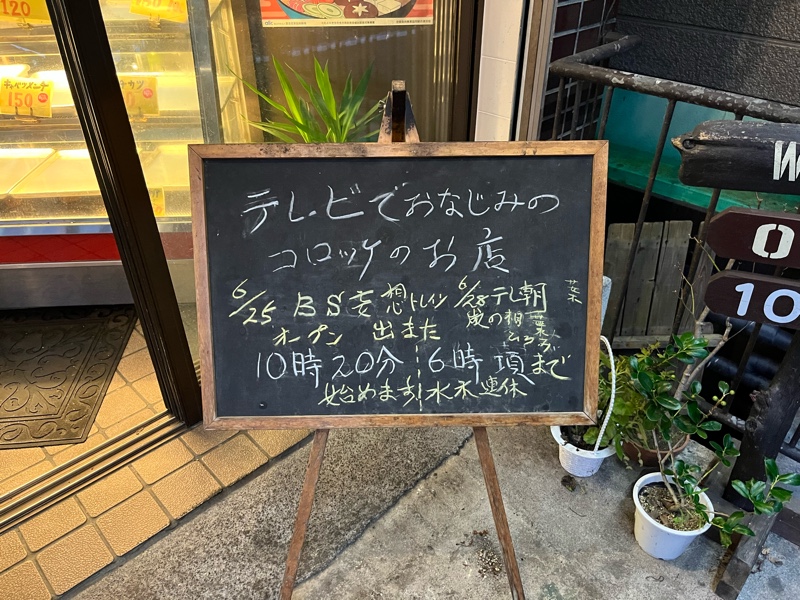 120
キャベツメンチ
150
カツ
テレビでおなじみの
コロッケのお店
6/25 BS妄想トレイン
オープン 出ました
6/28テレ朝
葉
10時20分
始めます
6時項まで
水木連休
W
O
10